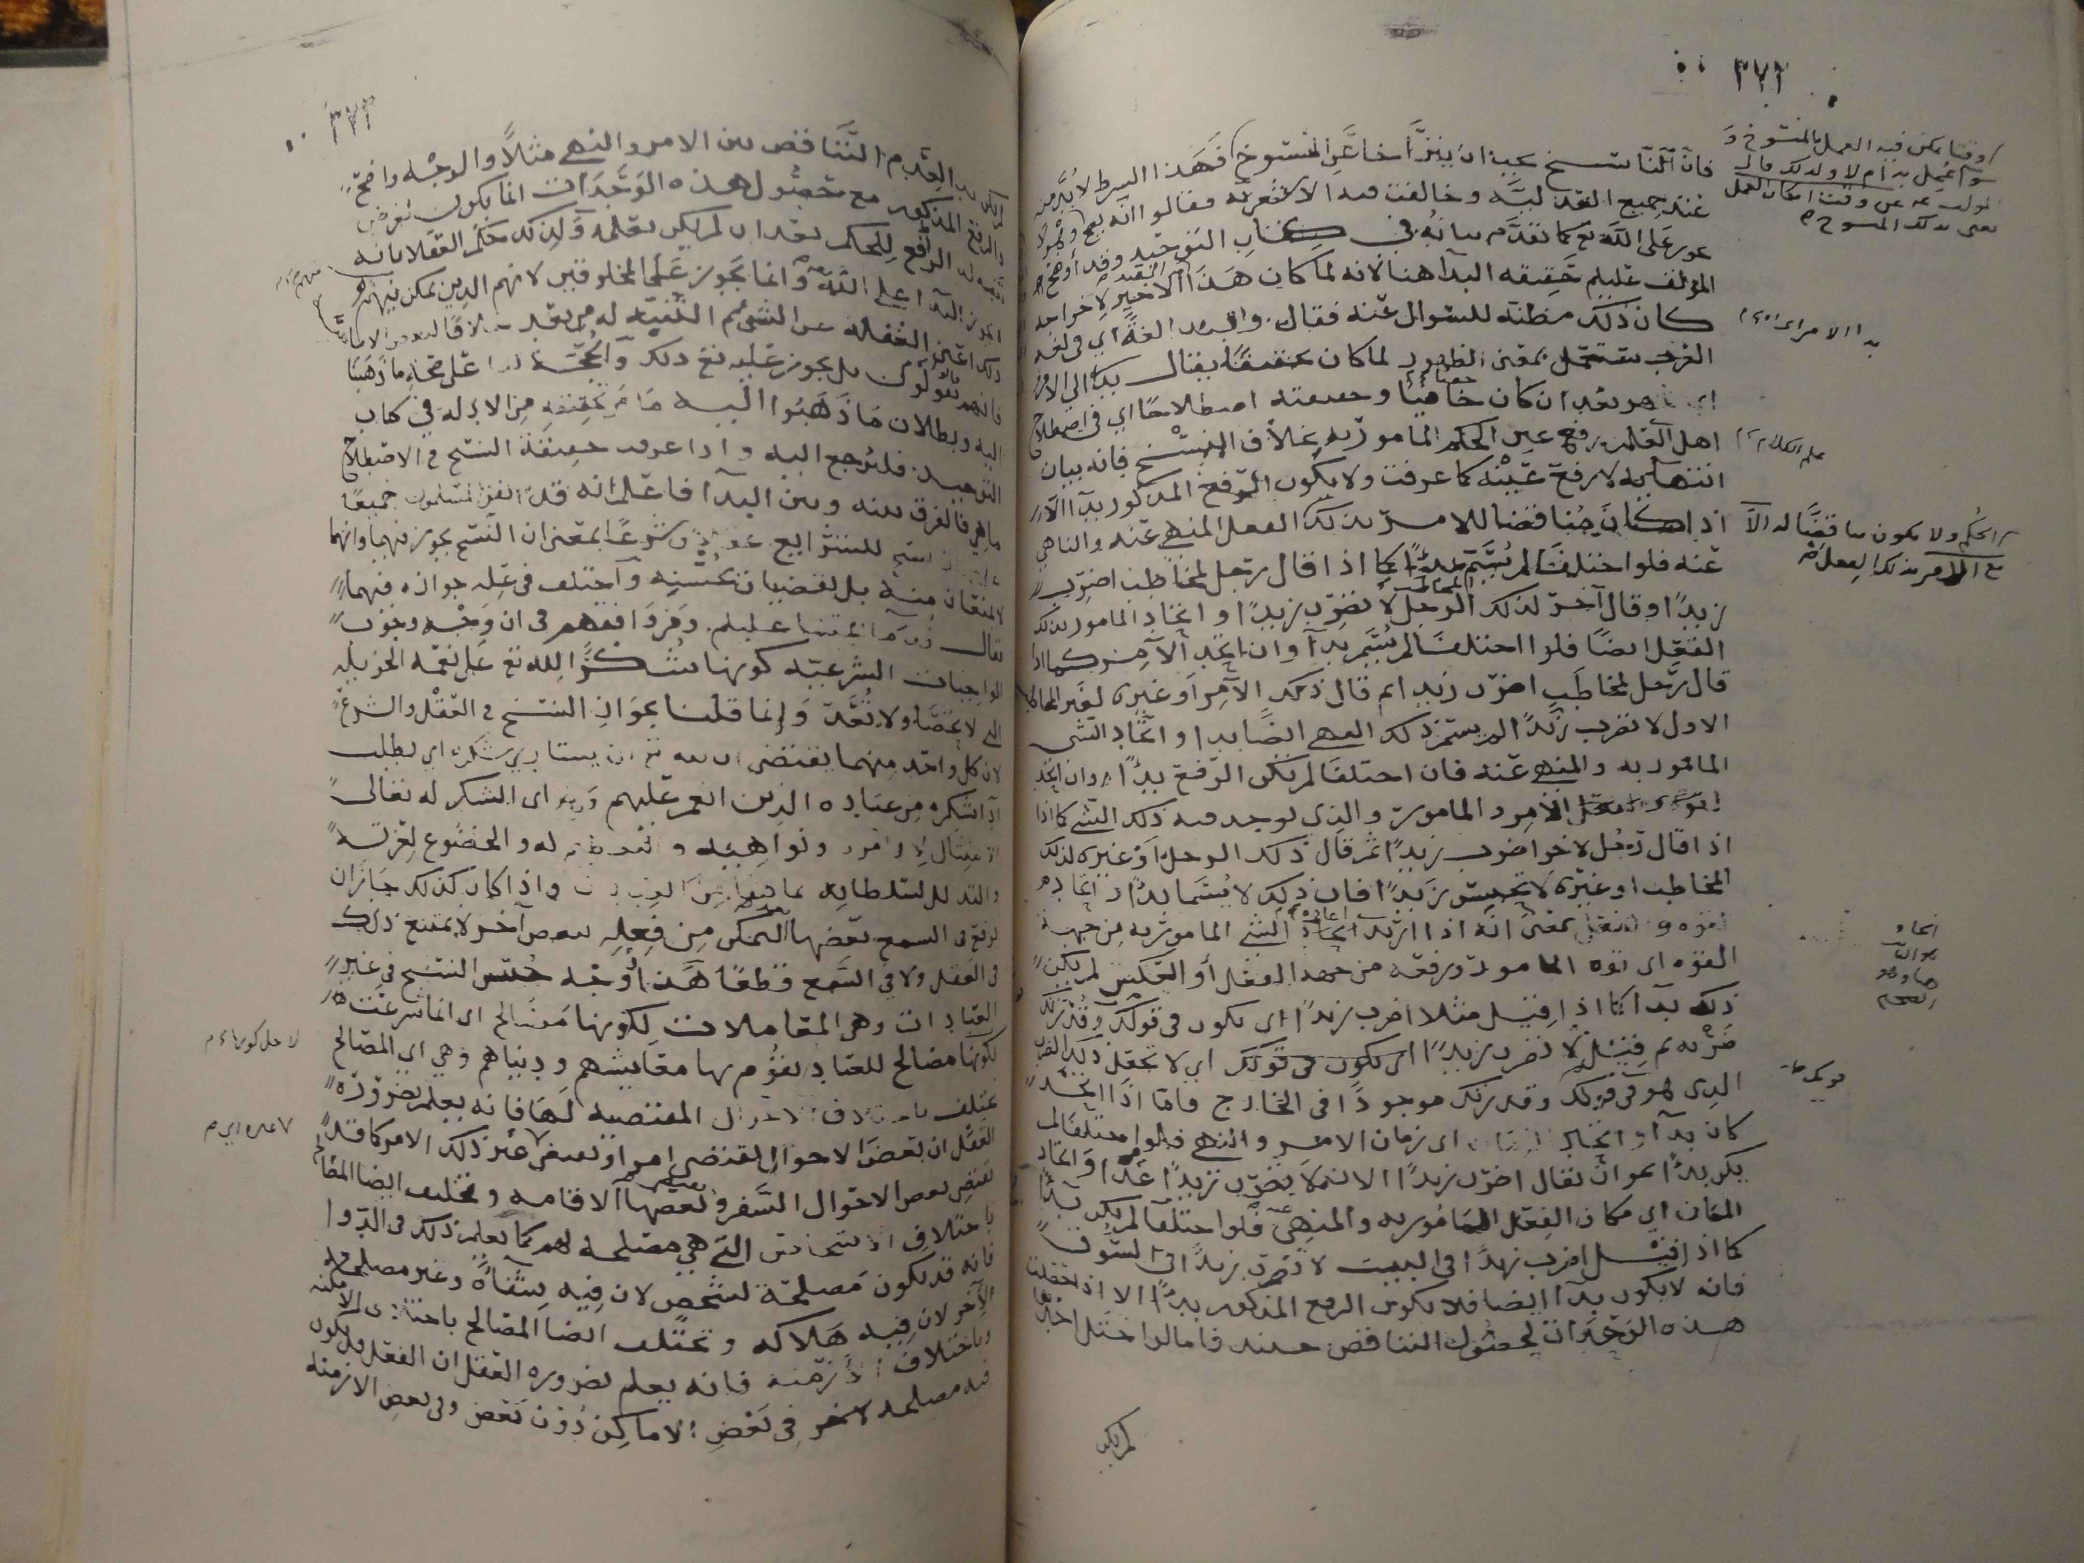 ٣٧٢
فان الناسخ يجب ان يتراخا عن المنسوخ فهذا الشرط لا بد من
عند جميع العدلية وخالفت فيه الاشعرية فقالوا انه يصح
على الله تع كما تقدم بيانه في كتاب التوحيد وقد أوضح
المؤلف عليلم حقيقه البدا هنا لانه لما كان هذا القيد الاخير لاخراجه
كان ذلك مظنه للسوال عنه فقال. والبدا لغةً اي في لغه
العرب يستعمل بمعنى الظهور لما كان خفيًا يقال بدا لي الامر
اي ظهر بعد ان كان خافيًا وحقيقته اصطلاحًا اي في اصطلاح
اهل العلم رفع عين الحكم المامور به بخلاف النسخ فانه بيان
انتهائه لا رفع عينه كما عرفت ولا يكون الرفع المذكور بدآ الا
اذا كان مناقضا للامر بذلك الفعل المنهي عنه والناهي
عنه فلو اختلفا لم يُسَمَّ بدًا كما اذا قال رجل لمخاطب اضرب
زيدًا وقال آخر لذلك الرجل لا تضرب زيدًا واتحاد المامور بذلك
الفعل ايضًا فلو اختلفا لم يُسَمَّ بدآ وان اتحد الآمر كما اذا
قال رجل لمخاطب اضرب زيد اثم قال ذلك الآمر او غيره لغير المخاطب
الاول لا تضرب زيدًا لم يسم ذلك النهي ايضًا بدا واتحاد الشي
المامور به والمنهي عنه فان اختلفا لم يكن الرفع بدًا وان اتحد
الآمر والمامور والذي يوجد فيه ذلك الشي كما اذا
اذا قال رجل لاخر اضرب زيدًا ثم قال ذلك الرجل او غيره لذلك
المخاطب او غيره لا تحبس زيدًا فان ذلك لا يُسَمّا بدًا واتحاده
قوه وفعل بمعنى انه اذا اريد اتحاد الشي المامور به من جهة
القوه اي قوه المامور ورفعه من جهه الفعل أو العكس لم يكن
ذلك بدآ كما اذا قيل مثلا اضرب زيدًا اي يكون في قوتك وقدرتك
ضربه ثم قيل لا تضرب زيدًا اي لا تفعل ذلك الضرب
الذي هو في قوتك وقدرتك موجودًا في الخارج فاما اذا اتحد
كان بدآ واتحاد الزمان اي زمان الامر والنهي فلو اختلفا لم
يكن بدًا نحو ان يقال اضرب زيدًا الان لا تضرب زيدًا غدًا واتحاد
المكان اي مكان الفعل المامور به والمنهي عنه فلو اختلفا لم يكن بدآ
كما اذا قيل اضرب زيدًا في البيت لا تضرب زيدًا في السوق
فانه لا يكون بدآ ايضا فلا يكون الرفع المذكور بدًا الا اذا حصلت
هذه الوحدات لحصول التناقض حينئذ فاما لو اختل احدها
لم يكن
او وقتا يمكن فيه العمل بالمنسوخ و
سوا عمل به ام لا ولذلك قال
المؤلف عن وقت امكان العمل
يعني بذلك المنسوخ
بدا الامر اي
علم الكلام
الحكم ولا يكون مناقضًا له الا
مع الامر بذلك الفعل
قوتك
٣٧٣
لم يكن بدا لعدم التناقض بين الامر والنهي مثلًا والوجه واضح
والرفع المذكور مع حصول هذه الوحدات انما يكون لغرض
الرفع للحكم بعد ان لم يكن يعلمه ولذلك حكم العقلا بانه
البدا على الله وانما يجوز على المخلوقين لانهم الذين يمكن فيهم
ذلك اعني الغفله عن الشي ثم التنبه له من بعد خلافًا لبعض الاماميه
فانهم يقولون بل يجوز عليه تع ذلك والحجة لنا على صحة ما ذهبنا
اليه وبطلان ما ذهبوا اليه ما مر تحقيقه من الادله في كتاب
التوحيد فليرجع اليه واذا عرفت حقيقة النسخ في الاصطلاح
ماهي فالفرق بينه وبين البدآ فاعلم انه قد اتفق المسلمون جميعًا
النسخ للشرائع عقلًا وشرعًا بمعنى ان النسخ يجوز فيهما وانهما
لا يمنعان منه بل يقضيان بحسنه وآختلف في عله جوازه فيهما
فقال ائمتنا عليلم. ومن وافقهم في ان وجه وجوب
الواجبات الشرعيه كونها شكرًا لله تع على نعمه الجزيله
التي لا تحصَّا ولا تُعَدّ وإنما قلنا بجواز النسخ في العقل والشرع
لان كل واحد منهما يقتضي ان لله تع ان يستادي شكره اي يطلب
اداشكره من عباده الذين انعم عليهم وهو اى الشكر له تعالى
الامتثال لاوامره ونواهيه والتعظيم له والخضوع لعزته
والتذلل لسلطانه بما شا من العبادات واذا كان كذلك جاز ان
يرفع في السمع بعضها الممكن من فعله ببعض آخر لا يمتنع ذلك
في العقل ولا في السمع قطعًا هذا وجه حسن النسخ في غير
العبادات وهي المعاملات لكونها مصالح اي انما شرعت
لكونها مصالح للعباد يقوم بها معايشهم ودنياهم وهي اي المصالح
تختلف باختلاف الاحوال المقتضيه لها فانه يعلم بضرورة
العقل ان بعض الاحوال يقتضي امرا وبعض غير ذلك الامر كما قد
يقتضي بعض الاحوال السفر وبعضها الاقامه وتختلف ايضا المصالح
باختلاف الاشخاص التي هي مصلحة لهم كما يعلم ذلك في الدوا
فانه قد يكون مصلحة لشخص لان فيه شفاه وغير مصلحة
لآخر لان فيه هلاكه وتختلف ايضا المصالح باختلاف الامكنه
وباختلاف الازمنه فانه يعلم بضروره العقل ان الفعل قد يكون
فيه مصلحه لاخر في بعض الاماكن دون بعض وفي بعض الازمنه
لاجل كونها